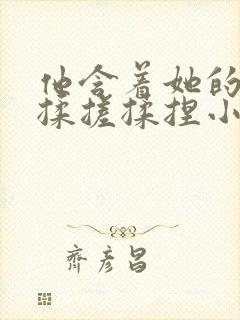 他含着她的
揉搓揉捏小
齐彦昌